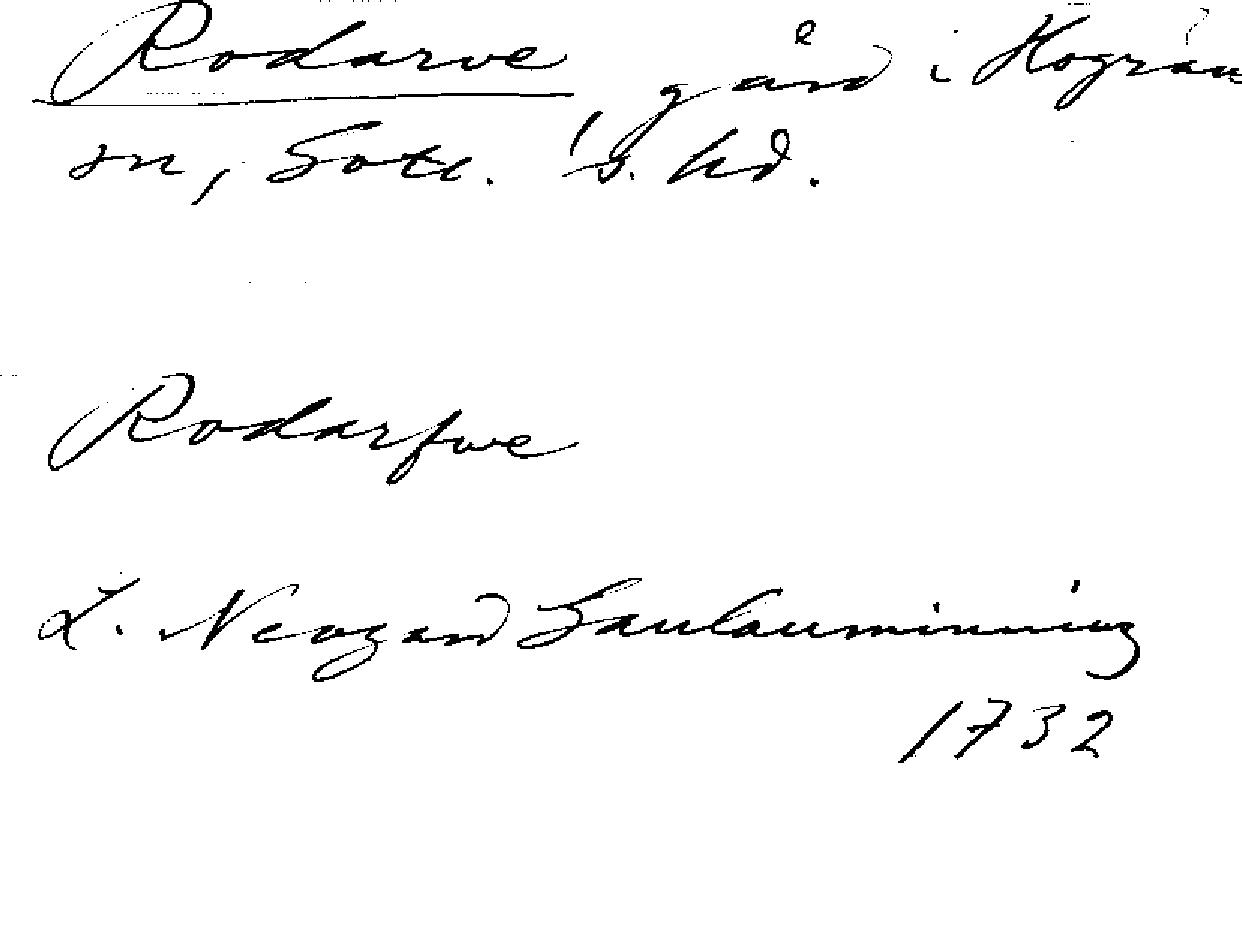 Rodarve, gård i Hogrän
sn, Gotl. s. hd.
Rodarfwe
L. Neogard Gaulauminning
1732